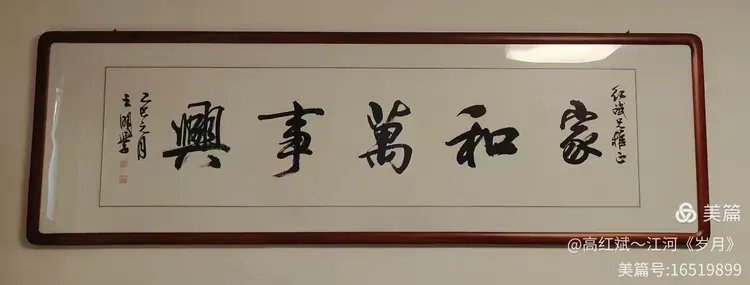 红斌兄雅正
家和萬事興
乙巳之月
王開學
美篇
@高红斌～江河《岁月》
美篇号:16519899